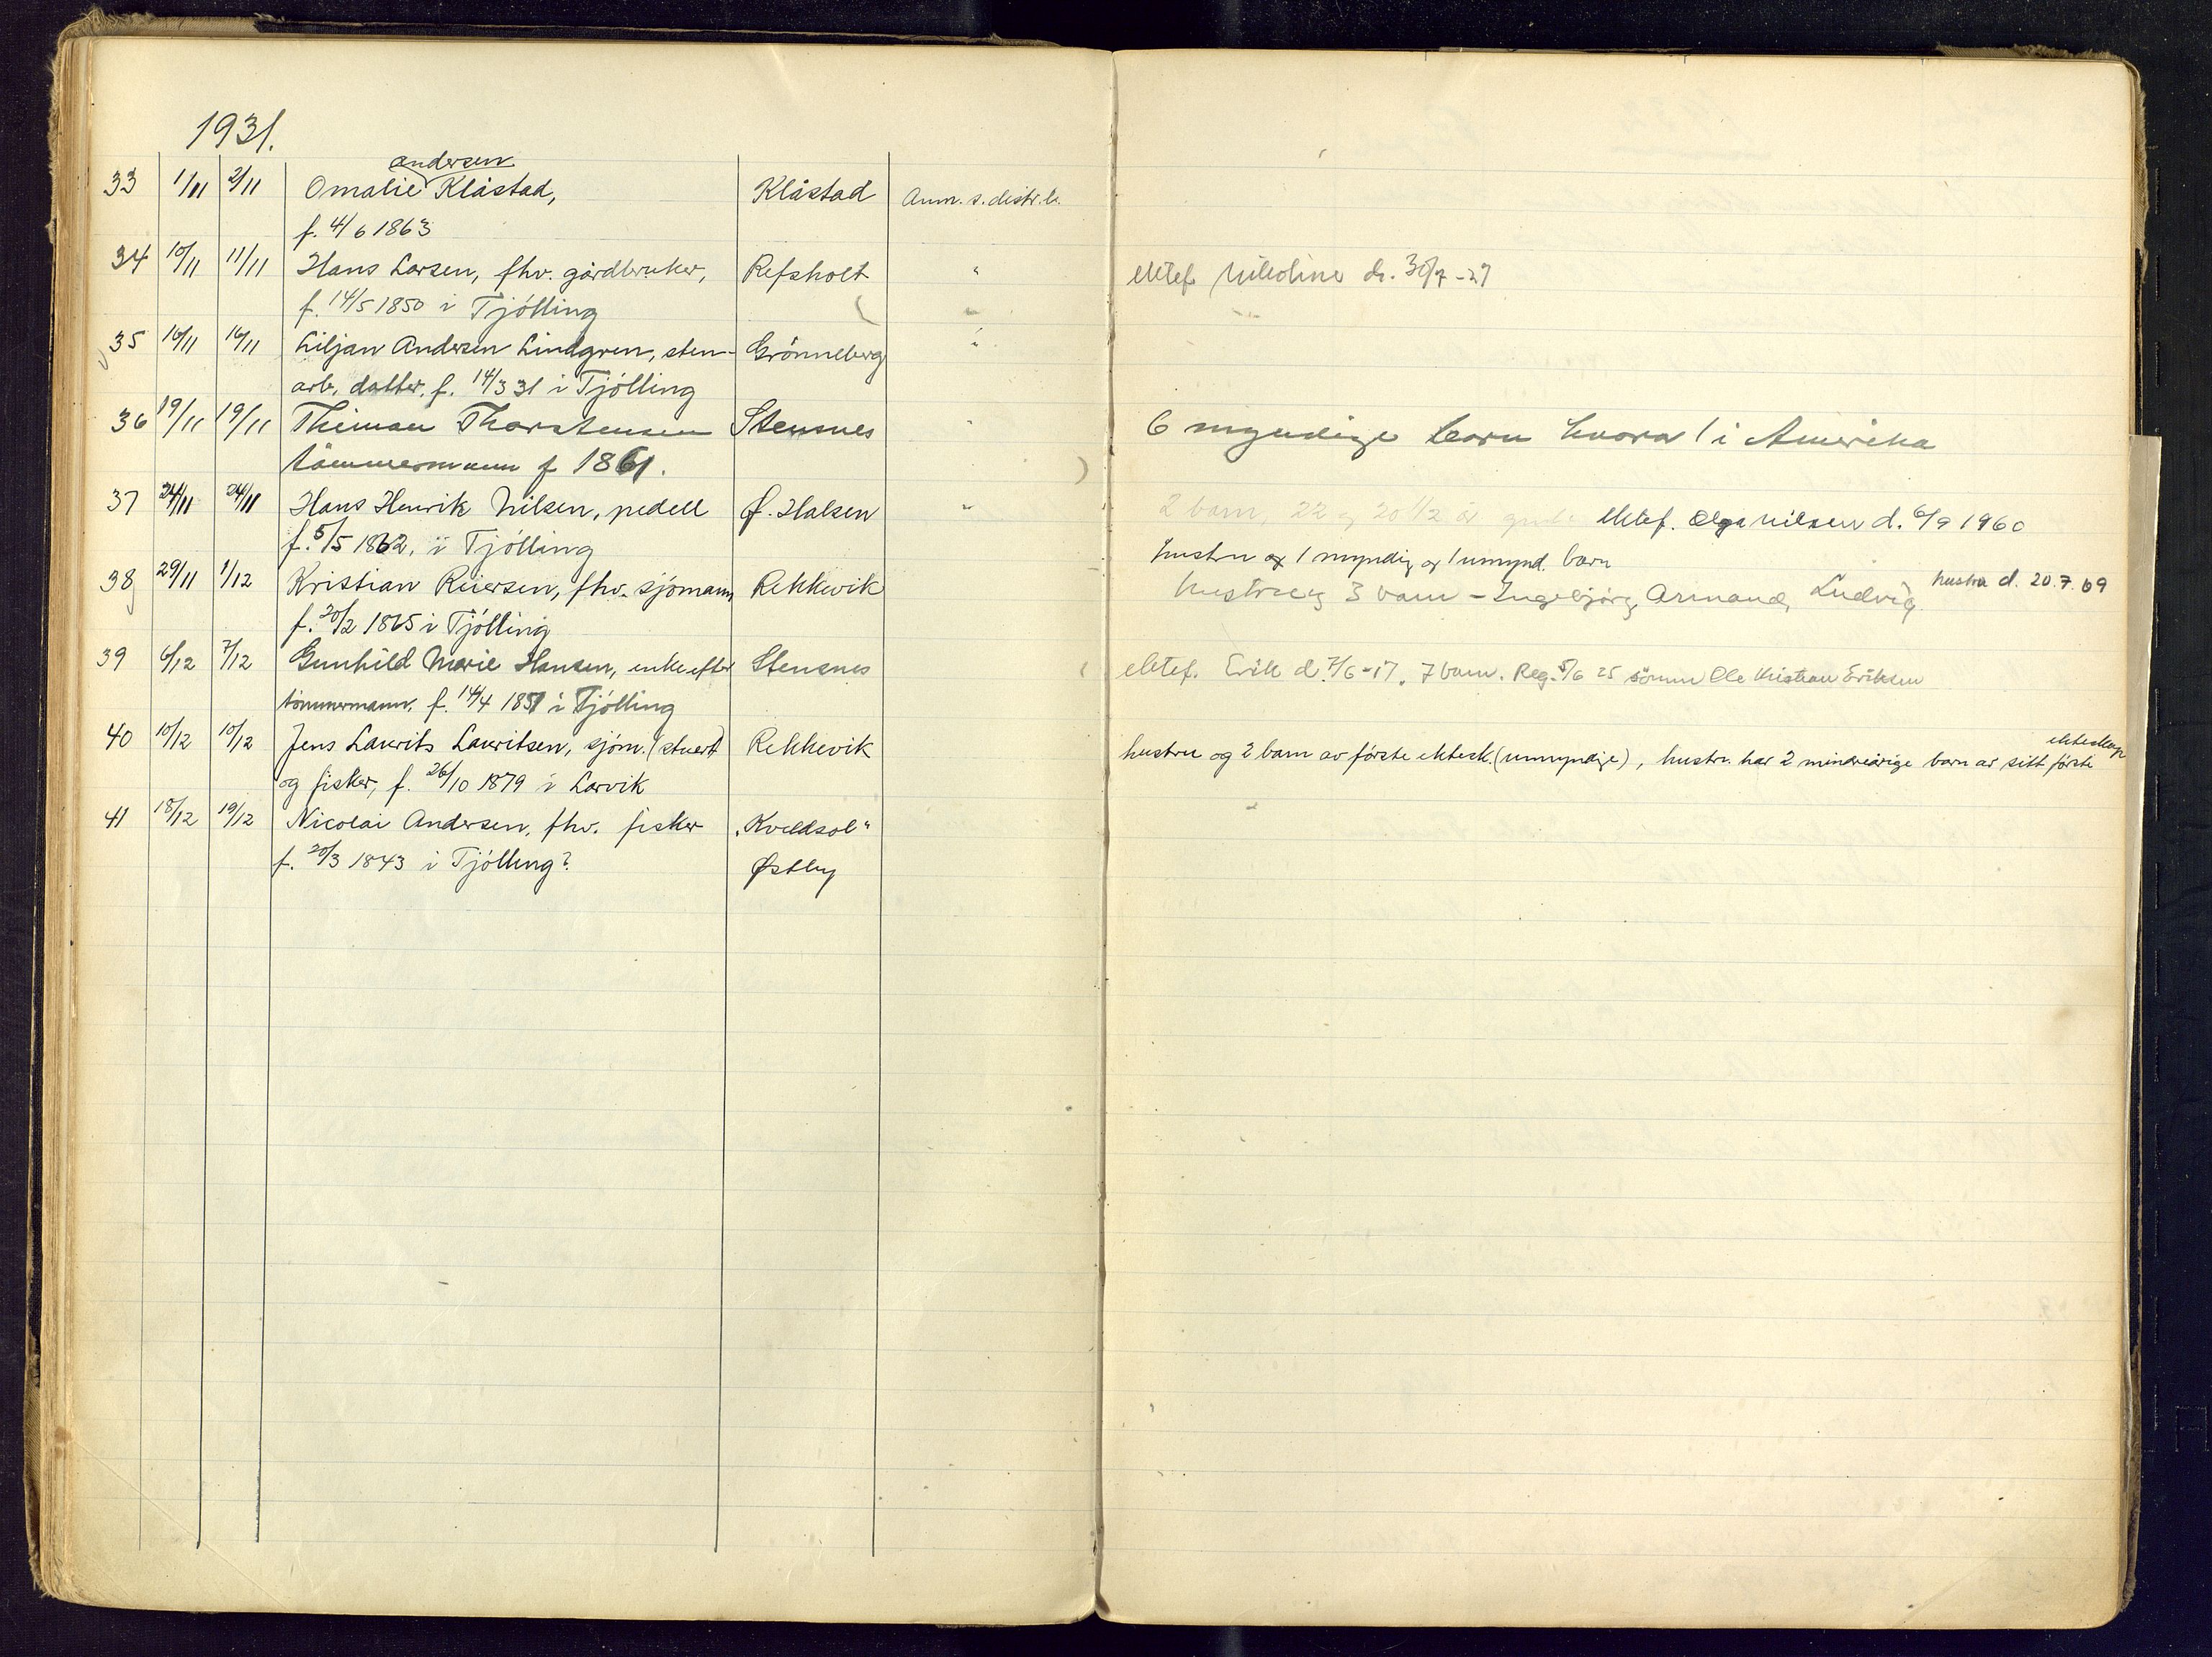 1931.
andersen
33 1/11 2/11 Omalie Klåstad, Klåstad Anm. s. distr. l.
f. 4/6 1863
34 10/11 11/11 Hans Larsen, fhv. gårdbruker, Refsholt " ektef. Nikoline d. 30/7-27
f. 14/5 1850 i Tjölling
35 10/11 16/11 Liljan Andersen Lindgren, sten- Grönneberg "
arb. datter, f. 14/3 31 i Tjölling
36 19/11 19/11 Thiman Thorstensen Stensnes " 6 myndige barn hvorav 1 i Amerika
tömmermann f 1861.
37 24/11 24/11 Hans Henrik Nilsen, pedell Ø. Halsen " 2 barn, 22 og 20 1/2 år ektef. Olga Nilsen d. 6/9 1960
f. 5/5 1862, i Tjölling hustru og 1 myndig og 1 umynd. barn
38 29/11 1/12 Kristian Reiersen, fhv. sjömann Rekkevik hustru og 3 barn - Ingebjörg, Armand, Ludvig hustru d. 20.7.69
f. 20/2 1865 i Tjölling
39 6/12 7/12 Gunhild Marie Hansen, enke efter Stensnes ektef. Erik d. 7/6-17. 7 barn. Reg. 5/6 25 sönnen Ole Kristian Eriksen
tömmermann, f. 14/4 1851 i Tjölling
40 10/12 10/12 Jens Laurits Lauritsen, sjöm. (stuert) Rekkevik hustru og 2 barn av förste ektesk. (umyndige), hustru har 2 mindreårige barn av sitt förste ekteskap
og fisker, f. 26/10 1879 i Larvik
41 18/12 19/12 Nicolai Andersen, fhv. fisker „Kveldsol"
f. 20/3 1843 i Tjölling? Østby